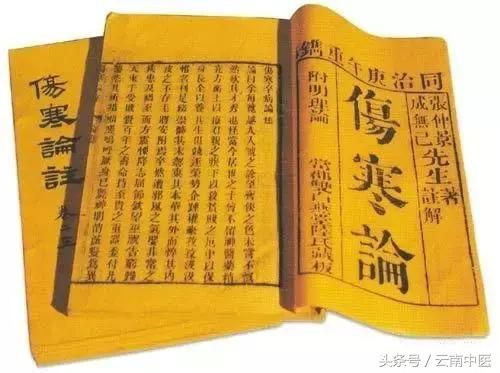 同治庚午年重鐫
張仲景先生著
成無己註解
傷寒論
附明理論
常郡雙白燕堂陸氏藏板
傷寒卒病論集
論曰余每覽越人入虢之診望齊侯之色未嘗不慨
然歎其才秀也怪當今居世之士曾不留神醫藥精究
方術上以療君親之疾下以救貧賤之厄中以保身
長全以養其生但競逐榮勢企踵權豪孜孜汲汲惟
名利是務崇飾其末忽棄其本華其外而悴其内
皮之不存毛將安附焉卒然遭邪風之氣嬰非常之
疾患及禍至而方震慄降志屈節欽望巫祝告窮歸
天束手受敗賚百年之壽命持至貴之重器委付凡
醫恣其所措咄嗟嗚呼厥身已斃神明消滅變爲異
傷寒論註
头条号/云南中医